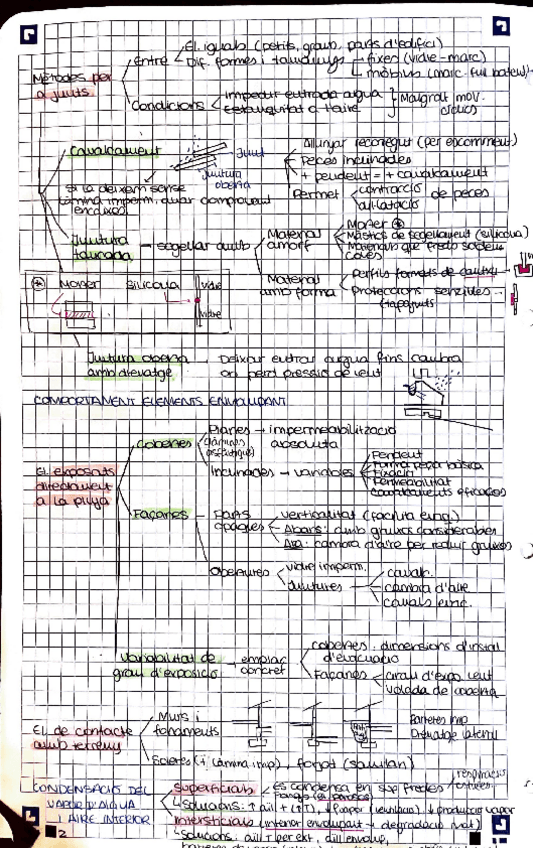 El. iguals (petits, grans, parts d'edifici)
Entre
Dif. formes i tamanys
fixes (vidre-marc)
mòbils (marc-full batent)
Mètodes per
a junts
Condicions
impedir entrada aigua
estanquitat a l'aire
Malgrat mov.
cíclics
Cavalcament
Junt
Juntura
oberta
Allunyar recorregut (per escorriment)
Peces inclinades
+ pendent = + cavalcament
Permet
contracció
dilatació
de peces
Si la deixem sense
làmina imperm. anar comprovant
encaixos
Juntura
tancada
segellar amb
Material
amorf
Morter
Màstics de segellament (silicona)
Materials que
Material
amb forma
Perfils formats de cautxú
Proteccions senzilles
(tapajunts
Morter
silicona
vidre
vidre
Juntura oberta
amb drenatge
Deixar entrar aigua fins cambra
on perd pressió de vent
COMPORTAMENT ELEMENTS ENVOLUPANT
El exposats
directament
a la pluja
Cobertes
Planes → impermeabilització
absoluta
(làmines
asfàltiques)
Inclinades → variables
Pendent
Forma peça bàsica
Fixació
Permeabilitat
Cavalcaments eficaços
Façanes
Parts
opaques
verticalitat (facilita
Abans: amb gruixos considerables
Ara: cambra d'aire per reduir gruixos
Obertures
vidre imperm.
Juntures
cavalc.
cambra d'aire
canals
Variabilitat de
grau d'exposició
emplaç
concret
cobertes: dimensions d'instal
d'evacuació
Façanes
grau d'expo vent
volada de coberta
El de contacte
amb terreny
Murs i
fonaments
Soleres (+ làmina imp), forjat (sanitari)
Barreres imp
Drenatge lateral
CONDENSACIÓ DEL
VAPOR D'AIGUA
I AIRE INTERIOR
Superficials
es condensa en sup fredes
respiració
Solucions: ↑ aïll + (↑T), ↓ vapor (ventilació), ↓ produccio vapor
Intersticials (interior envolupant → degradació mat)
Solucions: aïll T per ext,
2